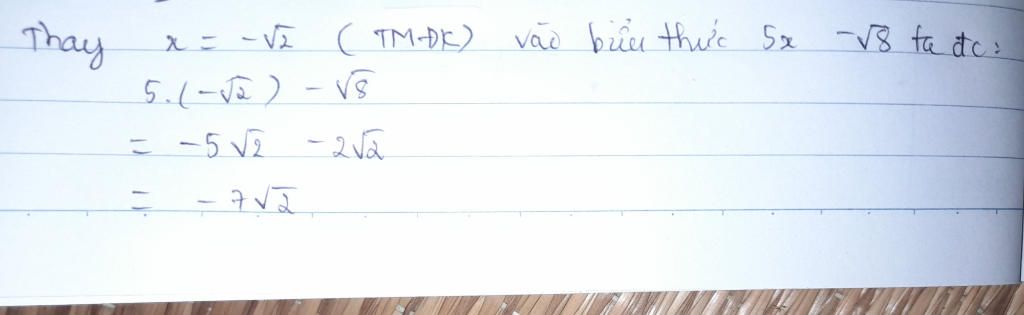 Thay x = -√2 (TMĐK) vào biểu thức 5x - √8 ta đc:
5.(-√2) - √8
= -5√2 - 2√2
= -7√2